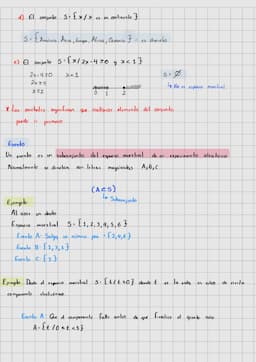 d) El conjunto S={x/x es un continente}
S={America, Asia, Europa, África, Oceanía}
e) El conjunto S={x/2x-4≥0 y x<1}
2x-4≥0 x<1
2x≥4
x≥2
0 1 2
S=∅
No es espacio muestral
Evento
Un evento es un subconjunto del espacio muestral de un experimento aleatorio
Normalmente se denotan con letras mayúsculas A,B,C.
(A⊂S)
Subconjunto
Ejemplo
Al lanzar un dado:
Espacio muestral S={1,2,3,4,5,6}
Evento A: Salga un número par ={2,4,6}
Evento B: {1,3,5}
Evento C: {3}
Ejemplo: Dado el espacio muestral S={t/t≥0} donde t es la vida en años de cierto
componente electrónico.
Evento A: Que el componente falle antes de que finalice el quinto año
A={t/0≤t<5}